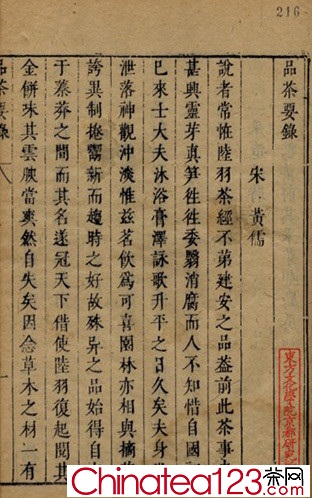 216
品茶要錄
宋 黃儒
說者常恠陸羽茶經不第建安之品葢前此茶事
甚興靈芽真筍徃徃委翳消腐而人不知惜自國
巳來士大夫沐浴膏澤詠歌升平之日久矣夫身
泄落神觀沖淡惟兹茗飲為可喜園林亦相與摘
誇異制捲鬻新而趨時之好故殊異之品始得自
于蓁莽之間而其名遂冠天下借使陸羽復起閱其
金餅味其雲腴當爽然自失矣因念草木之材一有
品茶要錄
東方文化學院京都研
Chinatea123茶网
.com